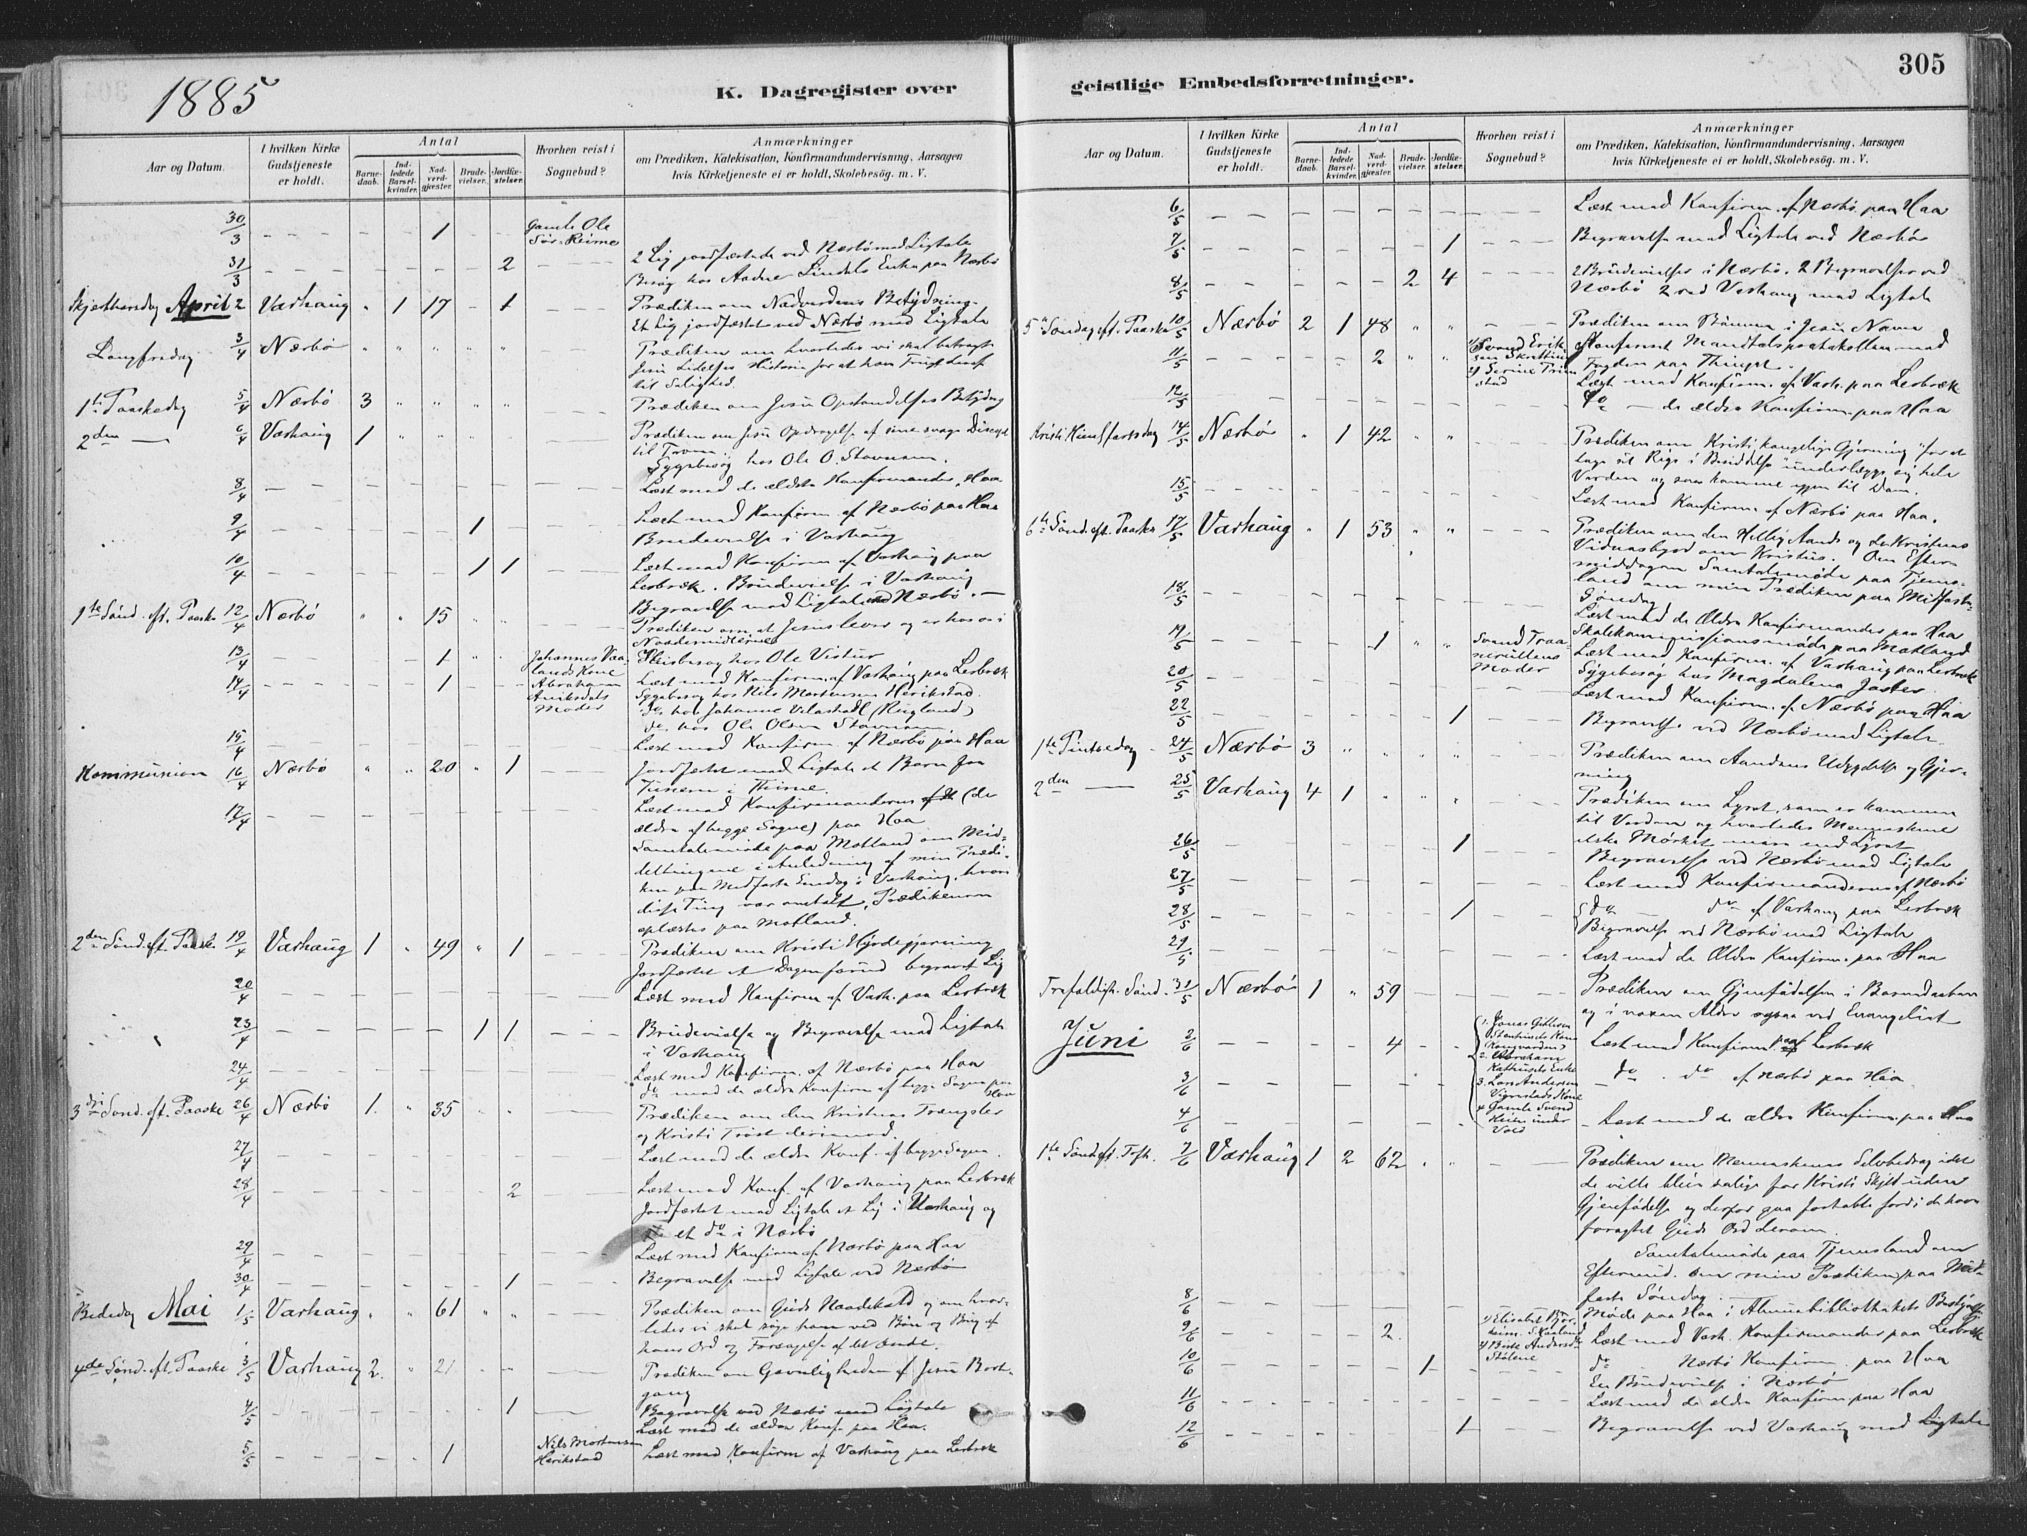 1885
K. Dagregister over
Aar og Datum.
I hvilken Kirke Gudstjeneste er holdt.
Antal
Barnedaab.
Indledede Barselkvinder.
Nadverdgjæster.
Brudevielser.
Jordfæstelser.
Hvorhen reist i Sognebud?
Anmærkninger
om Prædiken, Katekisation, Konfirmandundervisning, Aarsagen
hvis Kirketjeneste ei er holdt, Skolebesög. m. V.
30/3 1 Gamle Ole
Sör-Reime
31/3 2 2 Lig jordfæstede ved Nærbö med Ligtale
Besög hos Enke paa Nærbö
Skjærthorsdag April 2 Varhaug " 1 17 - 1 Prædiken om Nadverdens Betydning
Et Lig jordfæstet ved Nærbö med Ligtale
Langfredag 3/4 Nærbö " " " " " Prædiken om hvorledes vi skal betragte
Jesu Lidelses Historie for at have Frugt deraf
til Salighed.
1ste Paaskedag 5/4 Nærbö 3 " " " " Prædiken om Jesu Opstandelses Betydng
2den — 6/4 Varhaug 1 " " " Prædiken om Jesu Opdragelse af sine svage Discipl
til Troen.
Sygebesög hos Ole O. Stavnem.
8/4 Læst med de ældre Konfirmander, Haa
9/4 1 Læst med Konfirm. af Nærbö paa Haa
Brudevielse i Varhaug
10/4 1 1 Læst med Konfirm. af Varhaug paa
Lerbræk. Brudevielse i Varhaug
Begravelse med Ligtale ved Nærbö. —
1ste Sönd. eft. Paaske 12/4 Nærbö " " 15 Prædiken om, at Jesus lever og er hos os i
Naademidlerne
13/4 1 Johannes Vaalands Kone Husbesög hos Ole Vistur
14/4 1 Abraham
Moder Læst med Konfirm. af Varhaug paa Lerbræk
Sygebesög hos Nils Mortensen Herikstad.
do hos Johanne (Ringland)
do hos Ole Olsen Stavnem
15/4 Læst med Konfirm. af Nærbö paa Haa
Kommunion 16/4 Nærbö " " 20 " 1 Jordfæstet med Ligtale et Barn fra
17/4 Læst med Konfirmanderne (de
ældre af begge Sogne) paa Haa
Samtalemöde paa Motland om
i Anledning af min Prædiken
paa Midfaste Söndag i Varhaug, hvori
disse Ting var omtalt. Prædikenen
oplæstes paa Motland.
2den Sönd. eft. Paaske 19/4 Varhaug 1 " 49 " 1 Prædiken om Kristi Hyrdegjerning
Jordfæstet et Dagen forud begravet Lig
20/4 Læst med Konfirm af Varh. paa Lerbræk
23/4 1 1 Brudevielse og Begravelse med Ligtale
i Varhaug
24/4 Læst med Konfirm. af Nærbö paa Haa
do med de ældre Konfirm af begge Sogne paa Haa
3die Sönd. eft. Paaske 26/4 Nærbö 1. " 35 " " Prædiken om den Kristnes Trængsler
og Kristi Tröst derimod.
27/4 Læst med de ældre Konf. af begge Sogne.
28/4 2 Læst med Konf. af Varhaug paa Lerbræk
Jordfæstet med Ligtale et Lig i Varhaug og
et do i Nærbö
29/4 Læst med Konfirm af Nærbö paa Haa
30/4 1 Begravelse med Ligtale ved Nærbö
Bededag Mai 1/5 Varhaug " " 61 " Prædiken om Guds Naadebud og om hvorledes
vi skal söge ham ved Bön og Brug af
hans Ord og Forsagelse af det Onde.
4de Sönd. eft. Paaske 3/5 Varhaug 2. " 21 Prædiken om Gavnligheden af Jesu Bortgang
4/5 1 Begravelse ved Nærbö med Ligtale
Læst med de ældre Konf. paa Haa.
5/5 1 Nils Mortensen
Herikstad Læst med Konfirm af Varhaug paa Lerbræk
305
geistlige Embedsforretninger.
Aar og Datum.
I hvilken Kirke Gudstjeneste er holdt.
Antal
Barnedaab.
Indledede Barselkvinder.
Nadverdgjæster.
Brudevielser.
Jordfæstelser.
Hvorhen reist i Sognebud?
Anmærkninger
om Prædiken, Katekisation, Konfirmandundervisning, Aarsagen
hvis Kirketjeneste ei er holdt, Skolebesög. m. V.
6/5 Læst med Konfirm. af Nærbö paa Haa
7/5 1 Begravelse med Ligtale ved Nærbö
8/5 2 4 2 Brudevielser i Nærbö. 2 Begravelser ved
Nærbö 2 ved Varhaug med Ligtale
5te Söndag eft. Paaske 10/5 Nærbö 2 1 48 " " Prædiken om Bönnen i Jesu Navn
11/5 2 " " 1) Svend Eriksen
2) Serine Konfereret Mandtalsprotokollen med
Fogden paa Thinget.
Læst med Konfirm. af Varh. paa Lerbræk
12/5 do — de ældre Konfirm. paa Haa
Kristi Himmelfartsdag 14/5 Nærbö " 1 42 " " Prædiken om Kristi kongelige Gjerning "for at
tage sit Rige i Besiddelse" underlægge sig hele
Verden og saa komme igjen til Dom.
15/5 Læst med Konfirm. af Nærbö paa Haa.
6te Sönd. eft. Paaske 17/5 Varhaug " 1 53 " " Prædiken om den Hellig Aands og de Kristnes
Vidnesbyrd om Kristus. Om Eftermiddagen
Samtalemöde paa Tjemsland
om min Prædiken paa Midfaste
Söndag
18/5 Læst med de Ældre Konfirmander paa Haa
19/5 1 " " Svend
Moder Skolekommissionsmöde paa Motland
Læst med Konfirm. af Varhaug paa Lerbræk
20/5 Sygebesög hos Magdalena
Læst med Konfirm. af Nærbö paa Haa
22/5 1 Begravelse ved Nærbö med Ligtale
1ste Pintsedag 24/5 Nærbö 3 " " Prædiken om Aandens Udgydelse og Gjerning
2den — 25/5 Varhaug 4 1 " " Prædiken om Lyset, som er kommen
til Verden og hvorledes Menneskene
elske Mörket mere end Lyset
26/5 1 Begravelse ved Nærbö med Ligtale
27/5 Læst med Konfirmanderne af Nærbö
28/5 1 do — do af Varhaug paa Lerbræk
Begravelse ved Nærbö med Ligtale
29/5 Læst med de Ældre Konfirm. paa Haa
Trefoldigh. Sönd. 31/5 Nærbö 1 " 59 Prædiken om Gjenfödelsen i Barnedaaben
og i voxen Alder ved Evangeliet
Juni 2/6 4 1. Jonas
2. Abraham
Enke
3. Lars Andersen
Kone
4 Gamle Svend
Læst med Konfirm. paa Lerbræk
3/6 do do af Nærbö paa Haa
4/6 Læst med de ældre Konfirm. paa Haa
1ste Sönd. eft. Trefh. 7/6 Varhaug 1 2 62 " " Prædiken om Menneskenes Selvbedrag idet
de ville bleve salige for Kristi Skyld uden
Gjenfödelse og derfor gaa fortabte fordi de have
foragtet Guds Ord derom.
Samtalemöde paa Tjemsland om
Eftermid. om min Prædiken paa Midfaste
Söndag.
8/6 Möde paa Haa i Almuebibliothekets Bestyrelse
9/6 2. 1) Elisabet
2) Berte Andersdtr
Læst med Varh. Konfirmander paa Lerbræk
10/6 1 do Nærbö Konfirm. paa Haa
En Brudevielse i Nærbö
11/6 Læst med de ældre Konfirm paa Haa
12/6 1 Begravelse ved Varhaug med Ligtale